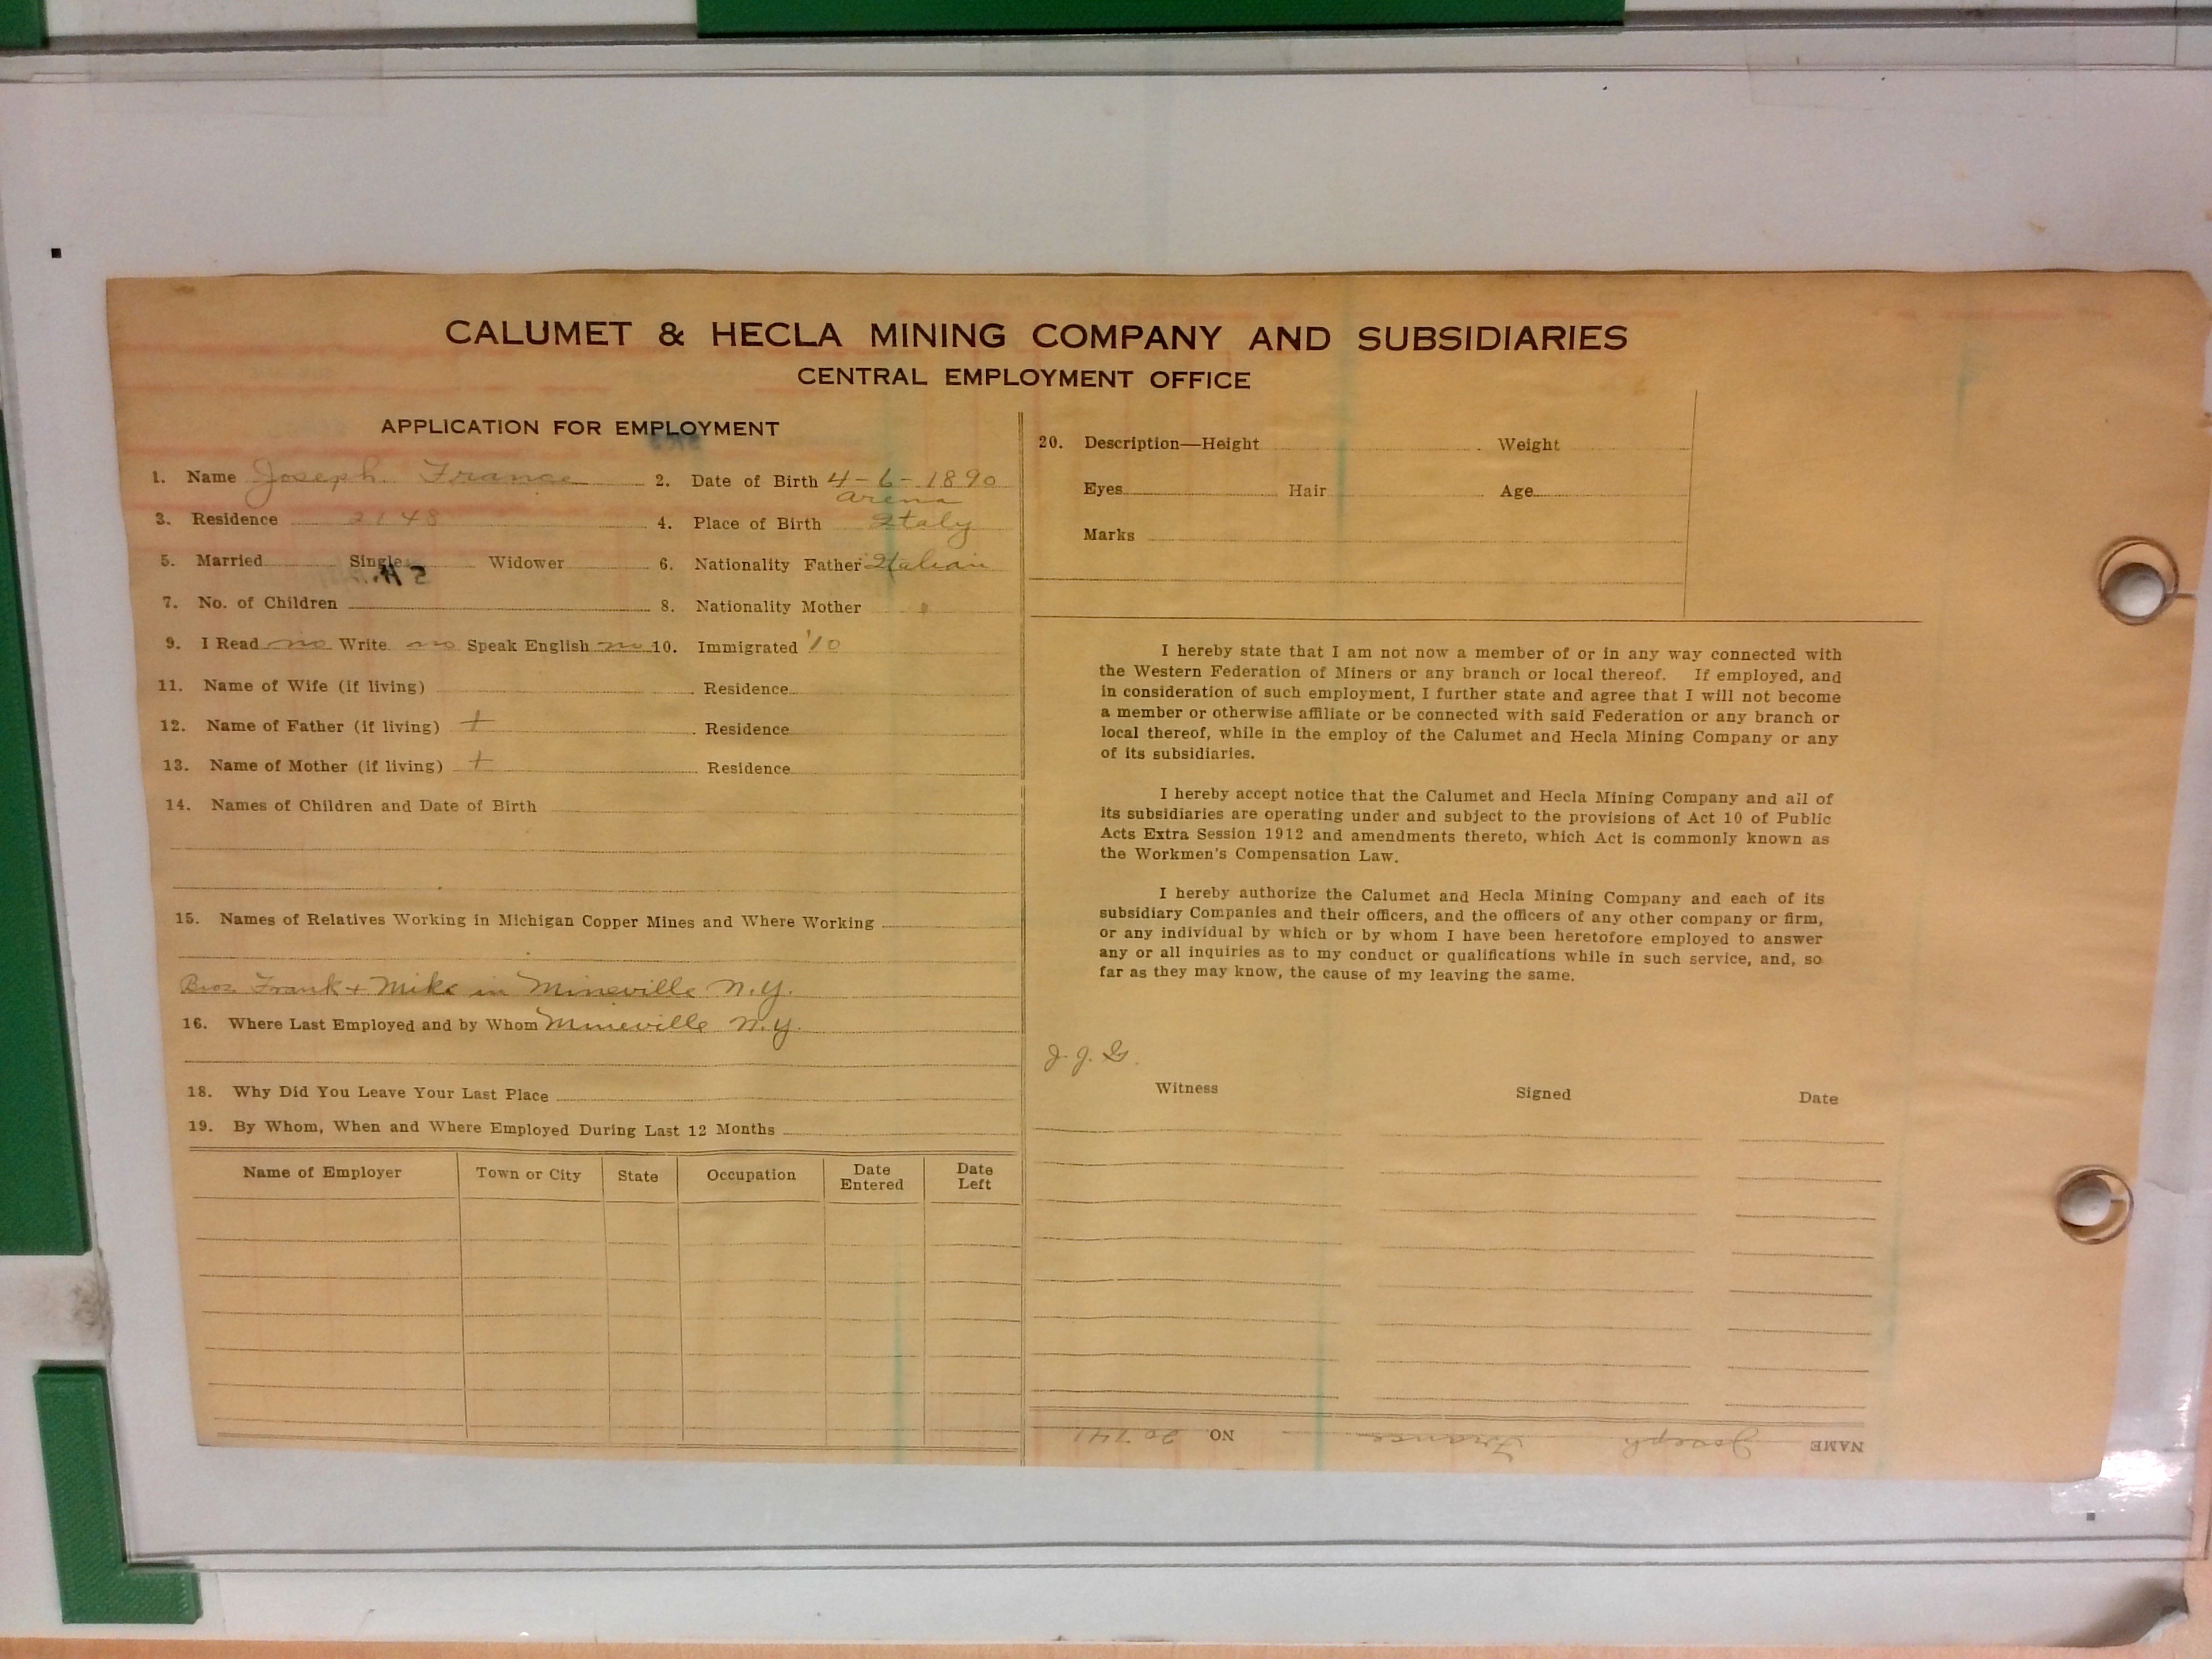 CALUMET & HECLA MINING COMPANY AND SUBSIDIARIES
CENTRAL EMPLOYMENT OFFICE
APPLICATION FOR EMPLOYMENT
1. Name Joseph France 2. Date of Birth 4-6-1890
arena
3. Residence 2148 4. Place of Birth Italy
5. Married Single Widower 6. Nationality Father Italian
7. No. of Children 8. Nationality Mother "
9. I Read no Write no Speak English no 10. Immigrated '10
11. Name of Wife (if living) Residence
12. Name of Father (if living) + Residence
13. Name of Mother (if living) + Residence
14. Names of Children and Date of Birth
15. Names of Relatives Working in Michigan Copper Mines and Where Working
Bros Frank + Mike in Mineville N.Y.
16. Where Last Employed and by Whom Mineville N.Y.
18. Why Did You Leave Your Last Place
19. By Whom, When and Where Employed During Last 12 Months
Name of Employer Town or City State Occupation Date Entered Date Left
20. Description—Height Weight
Eyes Hair Age
Marks
I hereby state that I am not now a member of or in any way connected with
the Western Federation of Miners or any branch or local thereof. If employed, and
in consideration of such employment, I further state and agree that I will not become
a member or otherwise affiliate or be connected with said Federation or any branch or
local thereof, while in the employ of the Calumet and Hecla Mining Company or any
of its subsidiaries.
I hereby accept notice that the Calumet and Hecla Mining Company and all of
its subsidiaries are operating under and subject to the provisions of Act 10 of Public
Acts Extra Session 1912 and amendments thereto, which Act is commonly known as
the Workmen's Compensation Law.
I hereby authorize the Calumet and Hecla Mining Company and each of its
subsidiary Companies and their officers, and the officers of any other company or firm,
or any individual by which or by whom I have been heretofore employed to answer
any or all inquiries as to my conduct or qualifications while in such service, and, so
far as they may know, the cause of my leaving the same.
J. J. G.
Witness Signed Date
NAME Joseph France NO. 20741